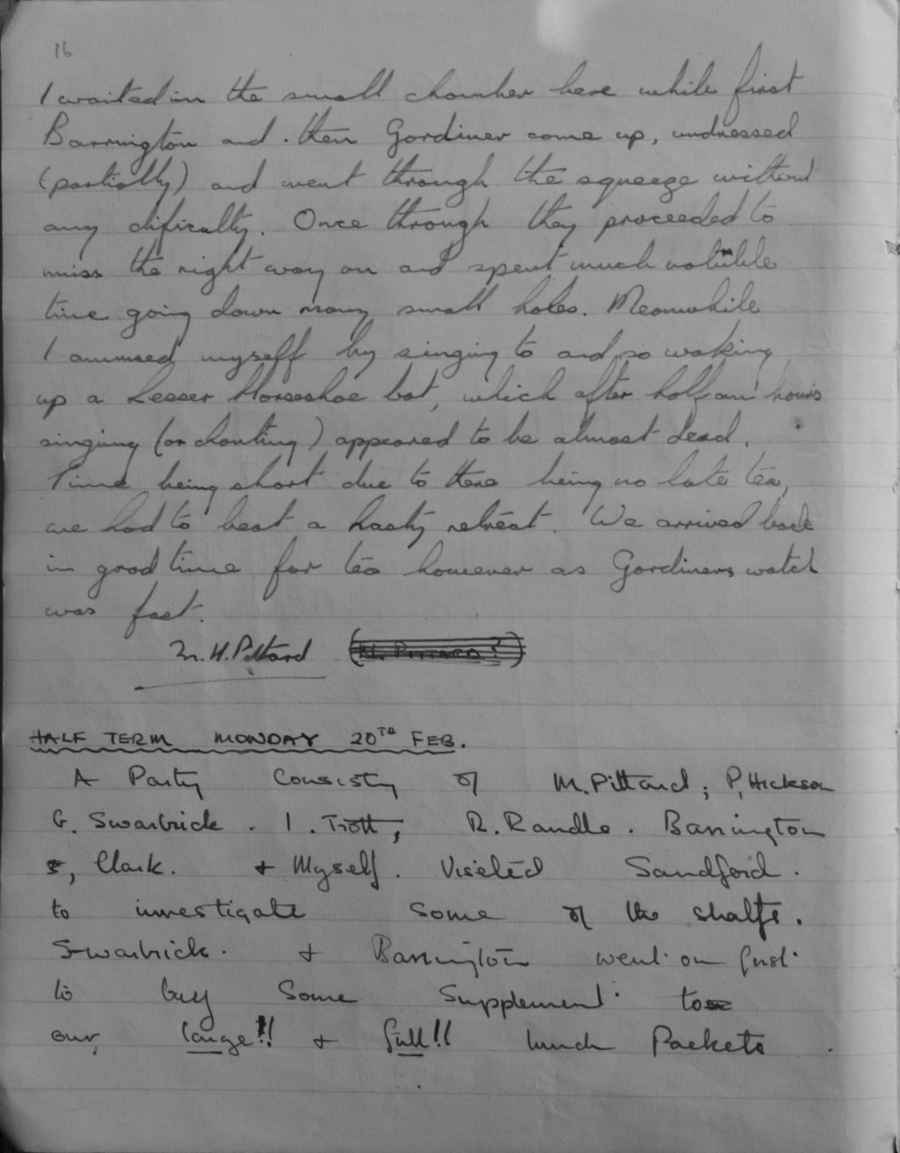 16
I waited in the small chamber here while first
Barrington and then Gardiner came up, undressed
(partially) and went through the squeeze without
any dificulty. Once through they proceeded to
miss the right way on and spent much
time going down many small holes. Meanwhile
I ammeed myself by singing to and so waking
up a Lesser Horseshoe bat, which after half an hours
singing (or chanting) appeared to be almost dead.
Time being short due to there being no late tea,
we had to beat a hasty retreat. We arrived back
in good time for tea however as Gardiners watch
was fast.
M.H. Pittard
HALF TERM MONDAY 20TH FEB.
A Party Consisty of M. Pittard; P, Hickson
G. Swarbrick. I. Trott, R. Randle. Barrington
, Clark. + Myself. Viseted Sandford.
to investigate some of the shafts.
Swarbrick. + Barrington went on first
to buy Some Supplement to
our, large!! + full!! lunch Packets.